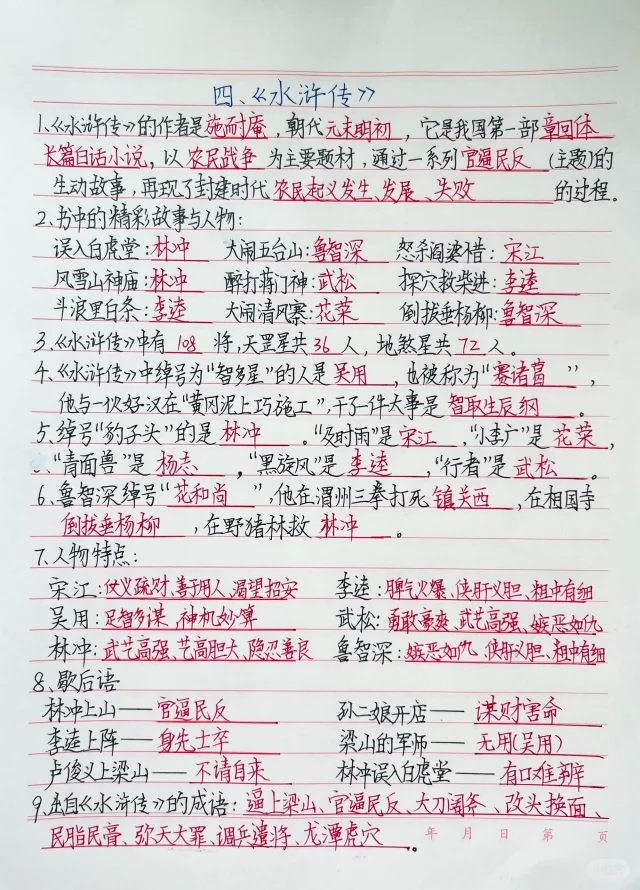 四、《水浒传》
1.《水浒传》的作者是施耐庵，朝代元末明初，它是我国第一部章回体
长篇白话小说，以农民战争为主要题材，通过一系列官逼民反(主题)的
生动故事，再现了封建时代农民起义发生、发展、失败的过程。
2.书中的精彩故事与人物：
误入白虎堂：林冲 大闹五台山：鲁智深 怒杀阎婆惜：宋江
风雪山神庙：林冲 醉打蒋门神：武松 探穴救柴进：李逵
斗浪里白条：李逵 大闹清风寨：花荣 倒拔垂杨柳：鲁智深
3.《水浒传》中有108将，天罡星共36人，地煞星共72人。
4.《水浒传》中绰号为“智多星”的人是吴用，也被称为“赛诸葛”，
他与一伙好汉在“黄冈泥上巧施工”，干了一件大事是智取生辰纲。
5.绰号“豹子头”的是林冲。“及时雨”是宋江，“小李广”是花荣，
“青面兽”是杨志，“黑旋风”是李逵，“行者”是武松。
6.鲁智深绰号“花和尚”，他在渭州三拳打死镇关西，在相国寺
倒拔垂杨柳，在野猪林救林冲。
7.人物特点：
宋江：仗义疏财、善于用人、渴望招安 李逵：脾气火爆、侠肝义胆、粗中有细
吴用：足智多谋、神机妙算 武松：勇敢豪爽、武艺高强、嫉恶如仇
林冲：武艺高强、艺高胆大、隐忍善良 鲁智深：嫉恶如仇、侠肝义胆、粗中有细
8.歇后语
林冲上山——官逼民反 孙二娘开店——谋财害命
李逵上阵——身先士卒 梁山的军师——无用(吴用)
卢俊义上梁山——不请自来 林冲误入白虎堂——有口难辩
9.出自《水浒传》的成语：逼上梁山、官逼民反、大刀阔斧、改头换面、
民脂民膏、弥天大罪、调兵遣将、龙潭虎穴。
年 月 日 第 页